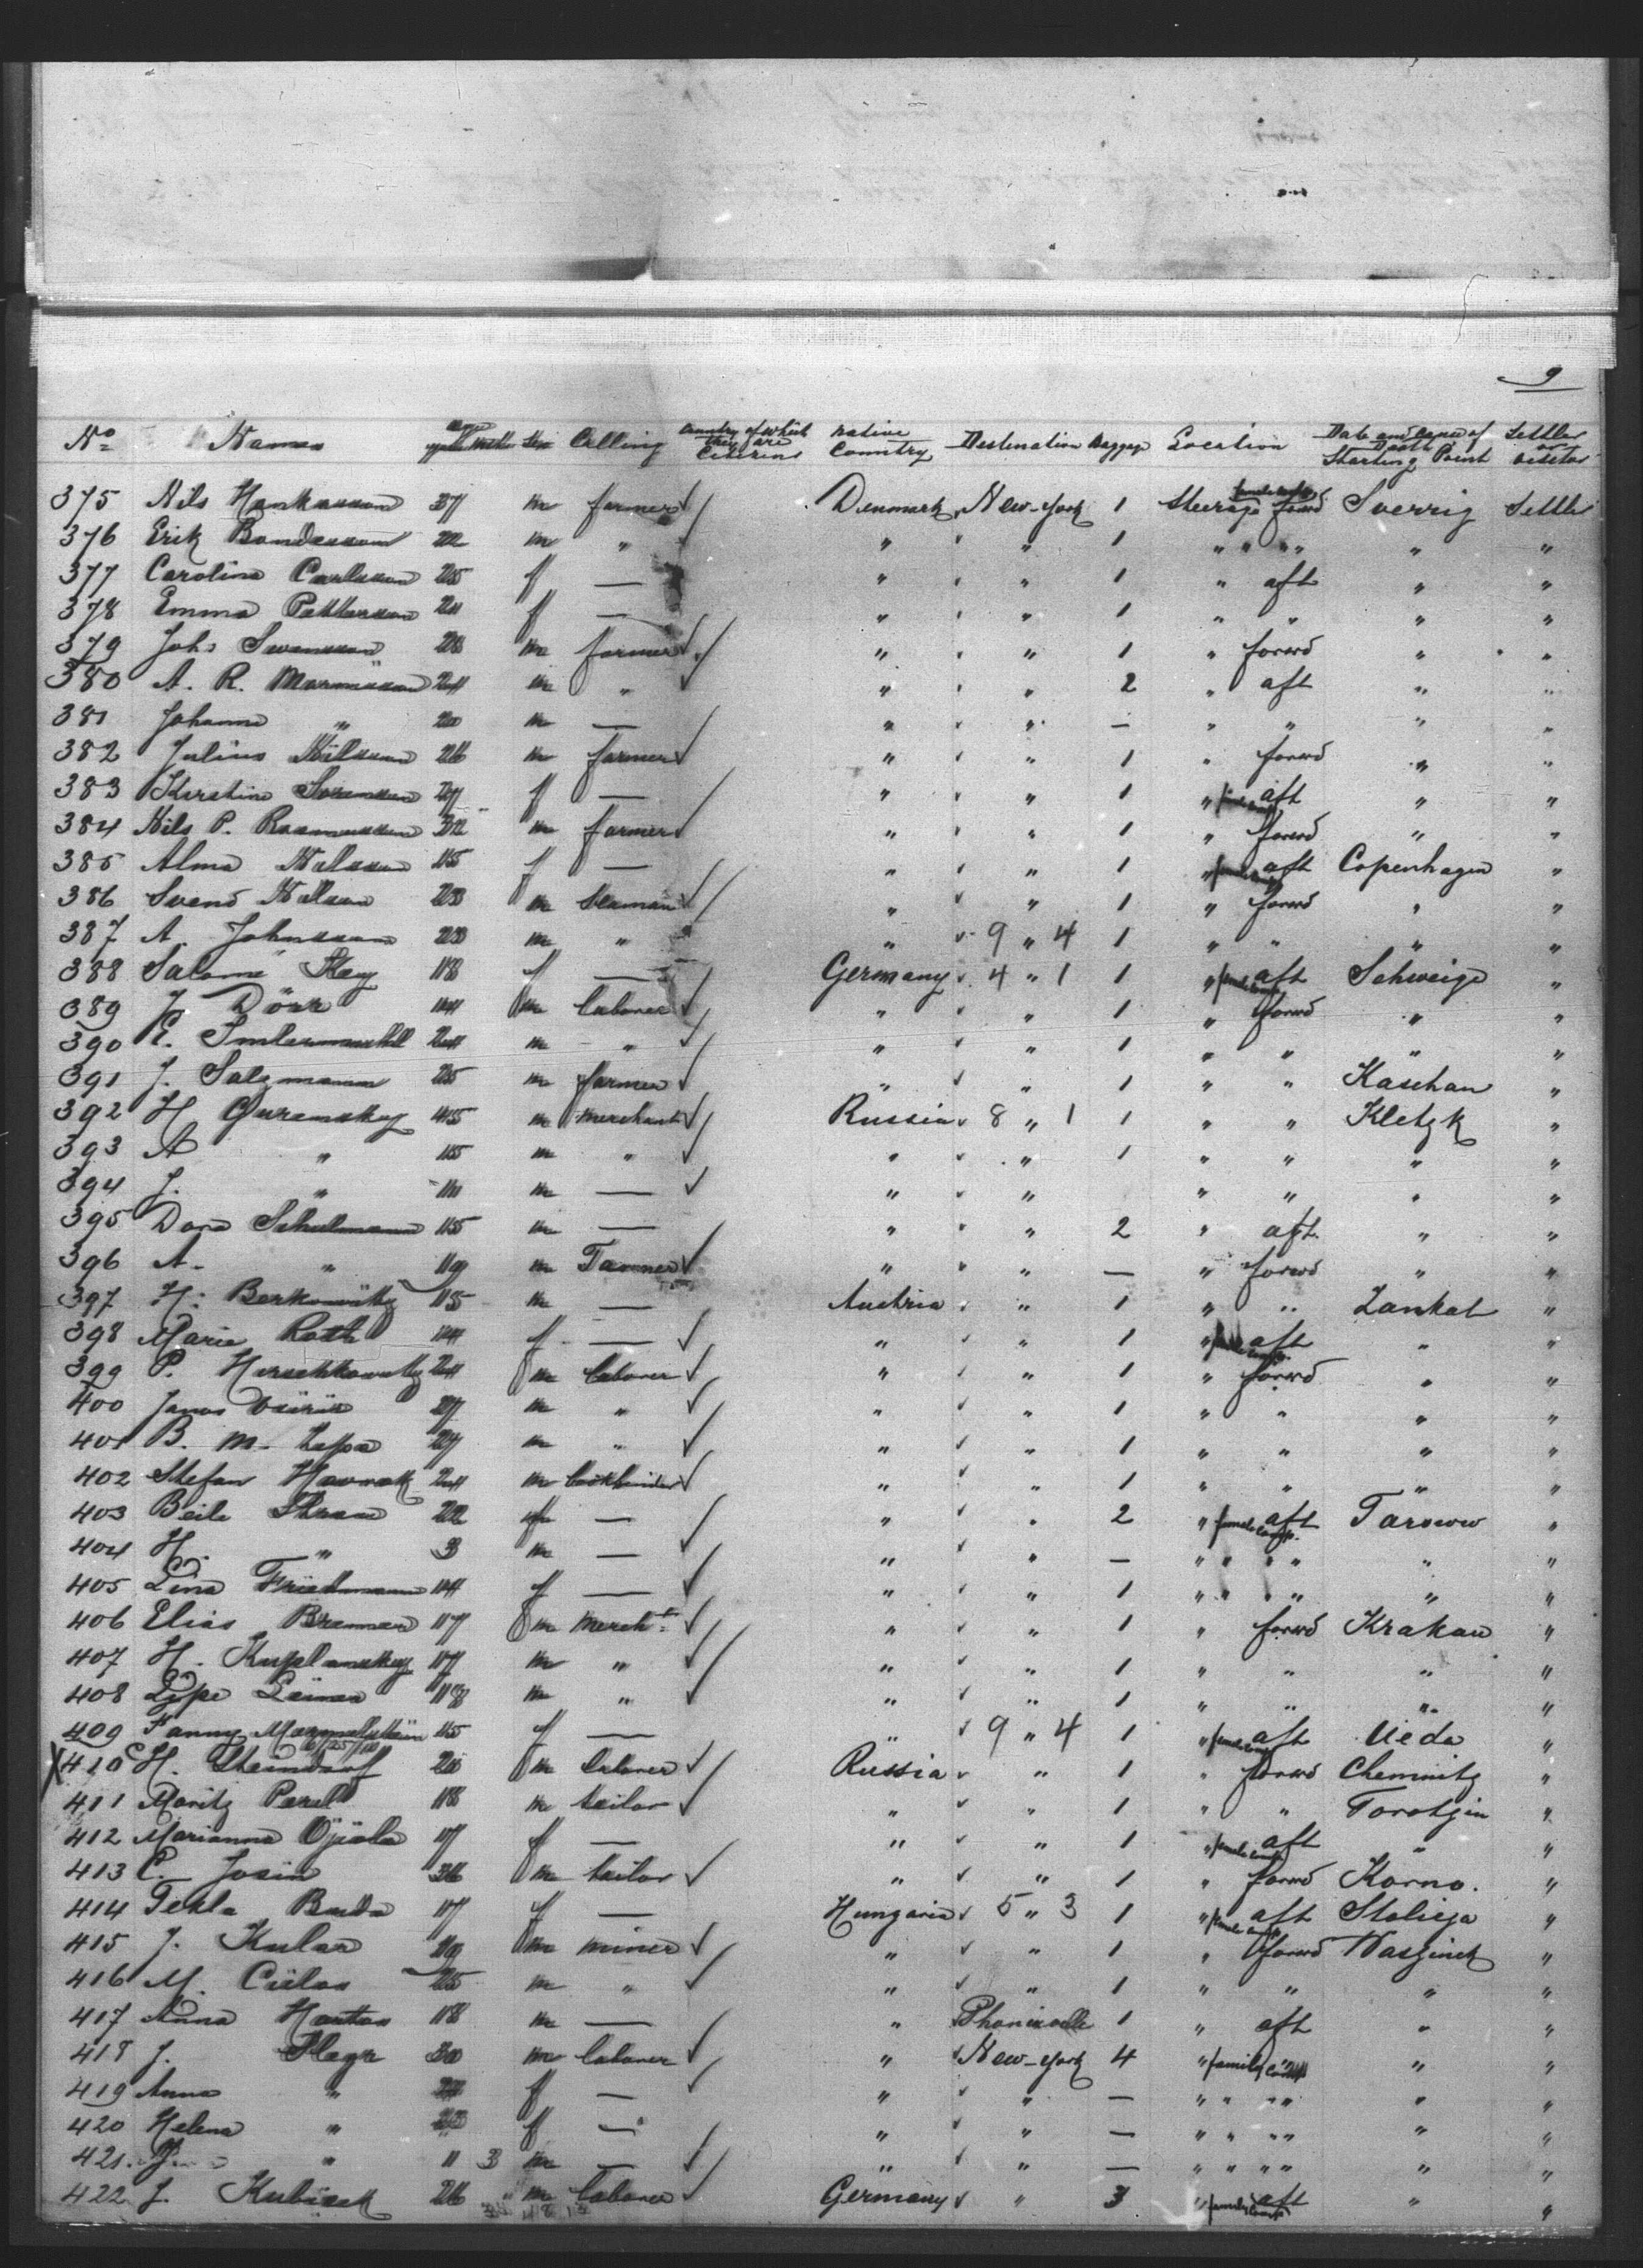 9
No Names age years Months Sex Calling Country of which they are Citizens native Country Destination Baggage Location Date and Cause of Death Starting Point Settler or visitor
375 Nils Hankasson 37 m farmer Denmark New-York 1 Steerage forwd Sverrig Settler
376 Erik Bondesson 22 m " " " 1 " " " " "
377 Carolina Carlsson 25 f — " " 1 " aft " "
378 Emma Petterson 21 f — " " 1 " " " "
379 Johs Swensson 28 m farmer " " 1 " forwd " "
380 A. R. 24 m " " " 2 " aft " "
381 Johanne " 20 m — " " — " " " "
382 Julius Nilsson 26 m farmer " " 1 " forwd " "
383 Kirstine Sorensen 27 f — " " 1 " aft " "
384 Nils P. Rasmussen 32 m farmer " " 1 " forwd " "
385 Alma Nilsson 15 f — " " 1 " female comp aft Copenhagen "
386 Svend Nilson 23 m Seaman " " 1 " forwd " "
387 A. Johnsson 23 m " " 9 " 4 1 " " " "
388 Salomé Key 18 f — Germany 4 " 1 1 " female comp aft Schweige "
389 J. Dörr 14 m laborer " " 1 " forwd " "
390 E. 24 m " " " 1 " " " "
391 J. Salzmann 25 m farmer " " 1 " " Kaschau "
392 H Guremsky 45 m merchant Russia 8 " 1 1 " " Kletzk "
393 A " 15 m " " " 1 " " " "
394 J. " 11 m — " " " " " "
395 Dora Schulmann 15 m — " " 2 " aft. " "
396 A. " 19 m Tanner " " — " forwd " "
397 H. Berkowitz 15 m — Austria " 1 " " Lankat "
398 Marie Roth 14 f — " " 1 " female comp. aft " "
399 P. Herschkowitz 24 m laborer " " 1 " forwd " "
400 Janos 27 m " " " 1 " " " "
401 B. M. Lapa 27 m " " " 1 " " " "
402 Stefan Havrak 24 m bookbinder " " 1 " " " "
403 Beile Stram 22 f — " " 2 " female comp. aft Tarnow "
404 H. " 3 m — " " — " " " " " "
405 Lina Friedmann 14 f — " " 1 " " " " " "
406 Elias Bremer 17 m Mercht " " 1 " forwd Krakau "
407 H. Kuplansky 17 m " " " 1 " " " "
408 Lype Leiner 18 m " " " 1 " " " "
409 Fanny 15 f — 9 " 4 1 " female comp aft Ueda "
X 410 H. Steindorf 20 m laborer Russia " 1 " forwd Chemnitz "
411 Moritz Perel 18 m tailor " " 1 " " Torotzin "
412 Marianna 17 f — " " 1 " female comp aft " "
413 C. Josin 36 m tailor " " 1 " forwd Korno. "
414 Tekla Buda 17 f — Hungaria 5 " 3 1 " female comp aft Stolieja "
415 J. Kular 19 m miner " " 1 " forwd "
416 M. 25 m " " " 1 " " " "
417 Anna Hartos 18 m — " 1 " aft " "
418 J. Slegr 30 m laborer " New-York 4 " family comp " "
419 Anna " 22 f — " " — " " " " " "
420 Helena " f — " " — " " " " " "
421. " 11 3 m — " " — " " " " " "
422 J. Kubisek 26 m laborer Germany " 3 " family comp aft " "